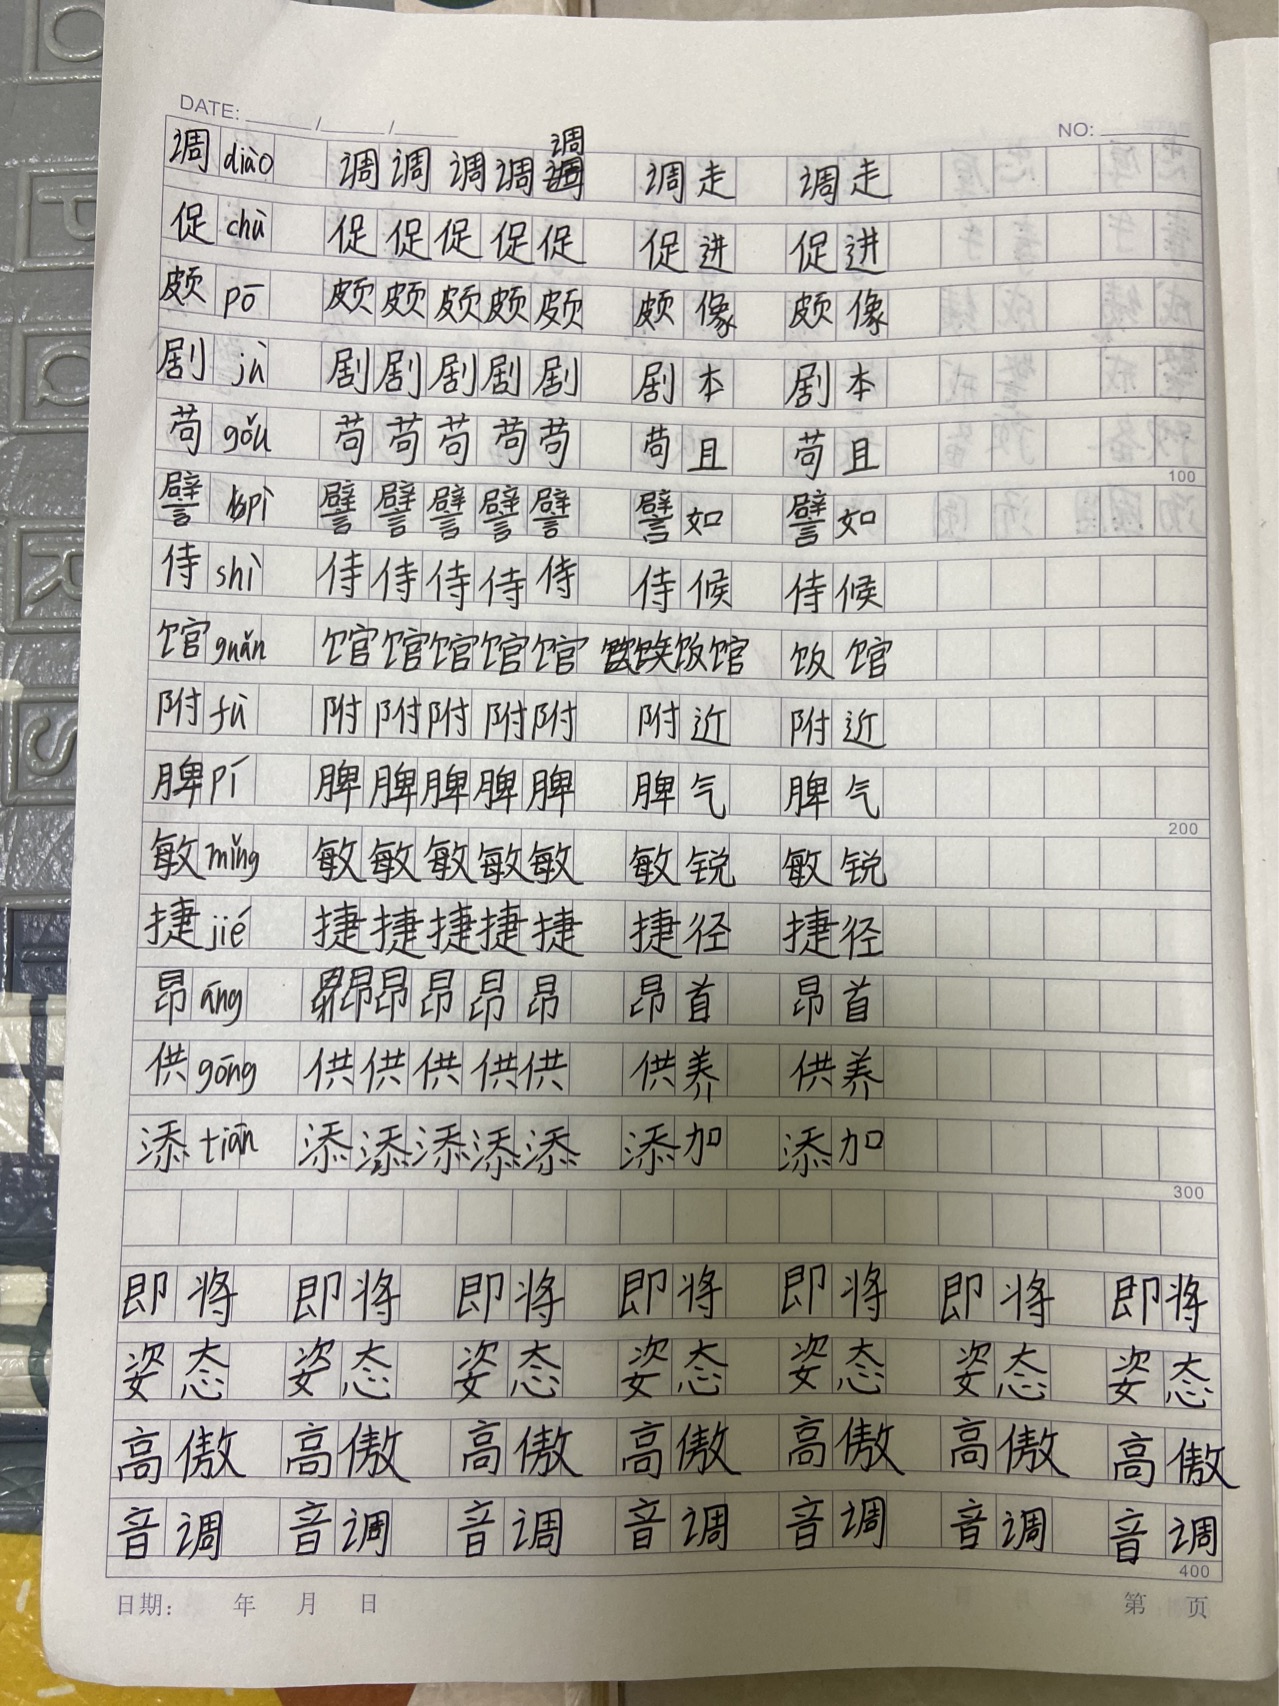 DATE: / / NO:
调 diào 调调调调调 调走 调走
调
促 chù 促促促促促 促进 促进
颇 pō 颇颇颇颇颇 颇像 颇像
剧 jù 剧剧剧剧剧 剧本 剧本
苟 gǒu 苟苟苟苟苟 苟且 苟且
100
譬 pì 譬譬譬譬譬 譬如 譬如
侍 shì 侍侍侍侍侍 侍候 侍候
馆 guǎn 馆馆馆馆馆 饭馆 饭馆
附 fù 附附附附附 附近 附近
脾 pí 脾脾脾脾脾 脾气 脾气
200
敏 mǐng 敏敏敏敏敏 敏锐 敏锐
捷 jié 捷捷捷捷捷 捷径 捷径
昂 āng 昂昂昂昂昂 昂首 昂首
供 gōng 供供供供供 供养 供养
添 tiān 添添添添添 添加 添加
300
即将 即将 即将 即将 即将 即将 即将
姿态 姿态 姿态 姿态 姿态 姿态 姿态
高傲 高傲 高傲 高傲 高傲 高傲 高傲
音调 音调 音调 音调 音调 音调 音调
400
日期: 年 月 日 第 页
O
P
Q
R
S